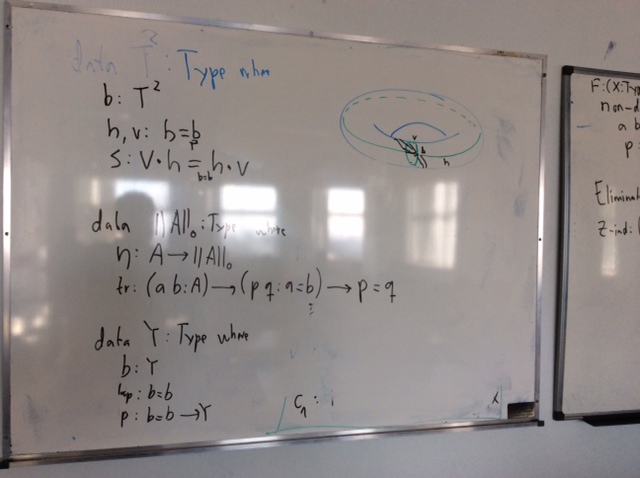 data T² : Type where
b : T²
h, v : b = b
s : v · h =_{b=b} h · v
v
b
h
data ||A||₀ : Type where
η : A → ||A||₀
tr : (a b : A) → (p q : a = b) → p = q
data Y : Type where
b : Y
lwp : b = b
p : b = b → Y
C₁ :
F : (X : Ty
non-d
a b
p :
Elimina
Z-ind : (